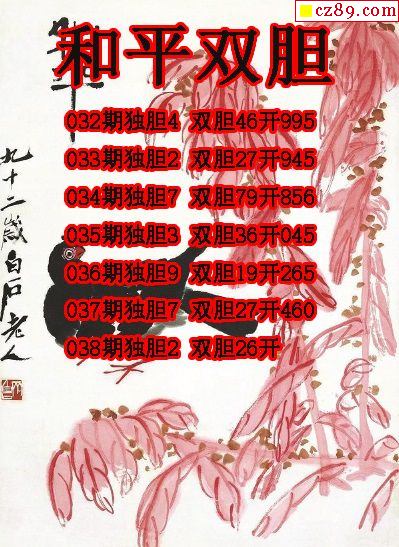 cz89.com
和平双胆
032期独胆4 双胆46开995
033期独胆2 双胆27开945
034期独胆7 双胆79开856
035期独胆3 双胆36开045
036期独胆9 双胆19开265
037期独胆7 双胆27开460
038期独胆2 双胆26开
九十二岁白石老人